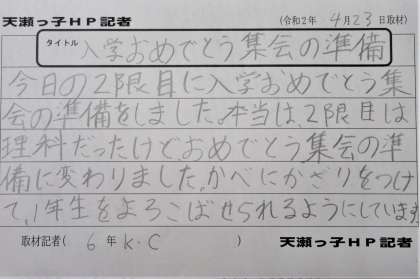 天瀬っ子HP記者 (令和2年 4月23日取材)
タイトル 入学おめでとう集会の準備
今日の2限目に入学おめでとう集
会の準備をしました。本当は、2限目は
理科だったけどおめでとう集会の準
備に変わりました。かべにかざりをつけ
て、1年生をよろこばせられるようにしています。
取材記者( 6年 K・C ) 天瀬っ子HP記者